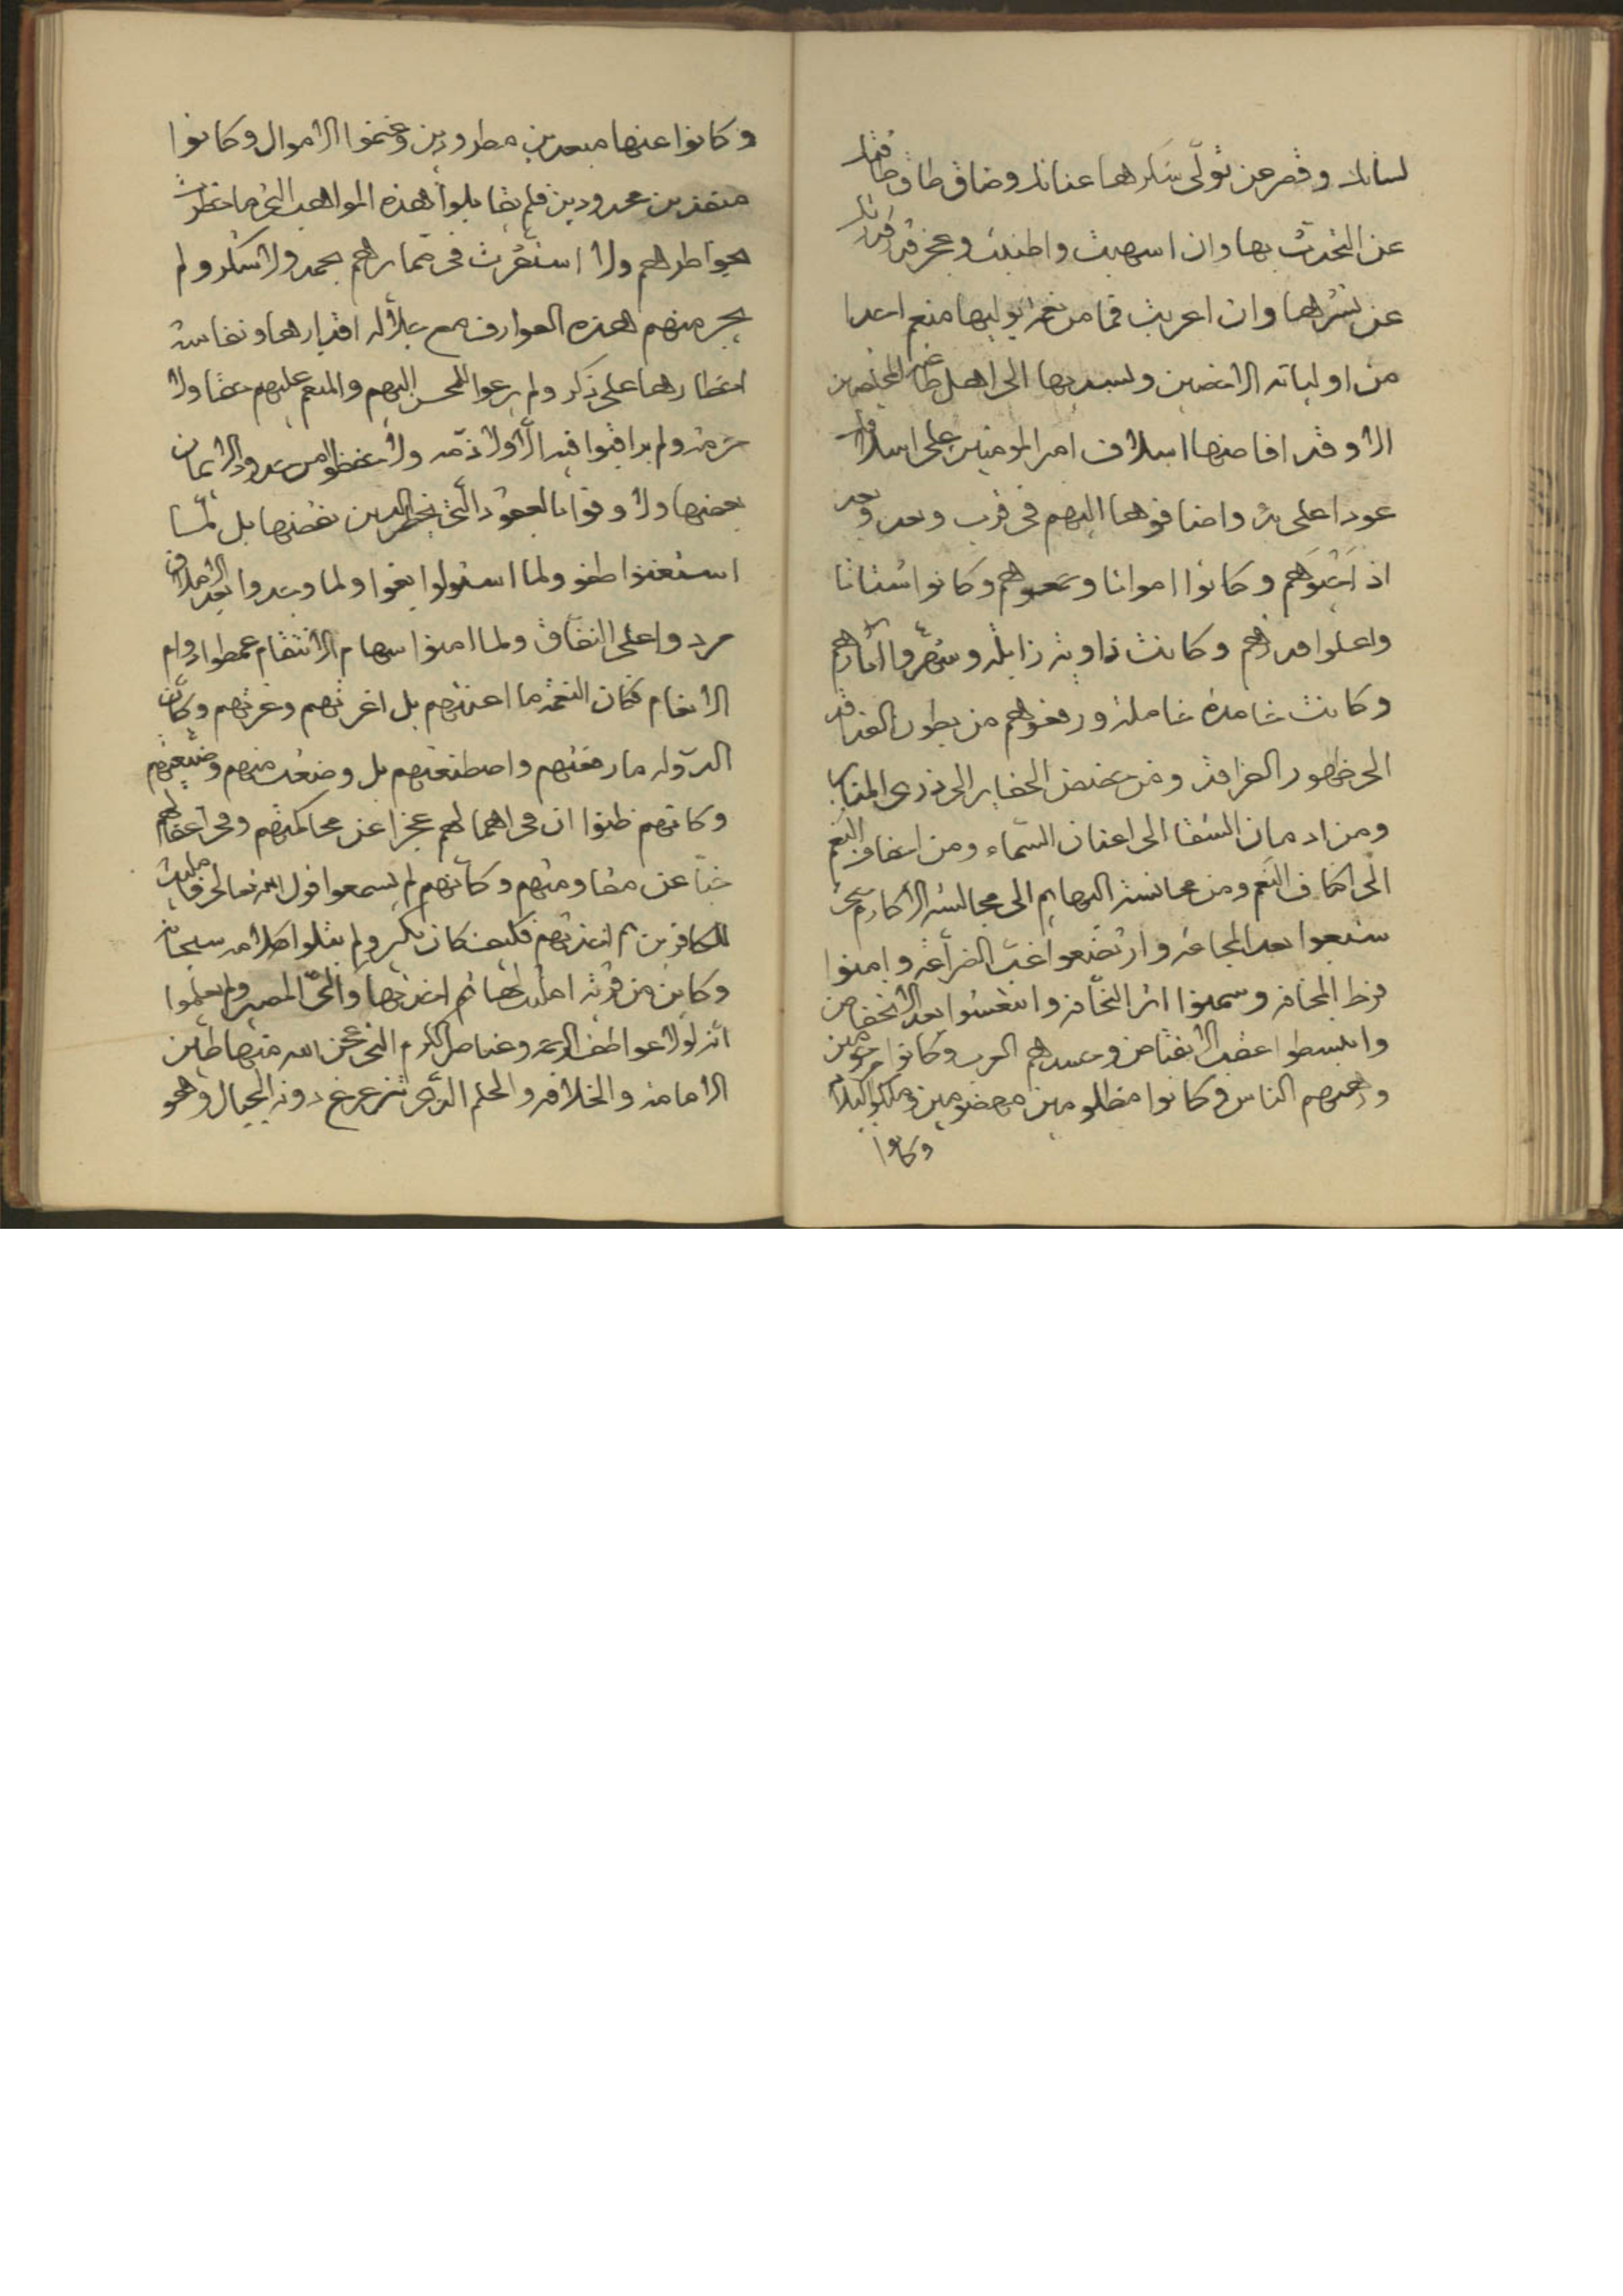 لسانك وقصر عن تولّى شكرها عنانك وضاق طاقك
عن التحدث بها وان اسهبت واطنبت وعجز
عن نشرها وان اعربت فما من نعمة يوليها منعم احدا
من اوليائه الاخصين ويسديها الى اهل المخلصين
الا وقد افاضها اسلاف امير المومنين على
عودا على بدء واضافوها اليهم فى قرب وبعد
اذ احيوهم وكانوا امواتا وجمعوهم وكانوا اشتاتا
واعلوا اقدارهم وكانت ذاوية زايلة وشهروا
وكانت خامدة خاملة ورفعوهم من بطون
الى ظهور ومن حضيض الحفاير الى ذرى المنابر
ومن ادمان الشقا الى اعنان السماء ومن اخفاف النعم
الى اكناف النعم ومن مجانسة البهايم الى مجالسة الاكارم حتى
شبعوا بعد المجاعة وارتفعوا غب الضراعة وامنوا
فرط المخافة وسمنوا اثر النحافة وانتعشوا بعد الانخفاض
وانبسطوا عقب الانقباض وحسدهم العرب وكانوا مرحومين
وهم الناس وكانوا مظلومين مهضومين وملكوا البلاد
وكانوا
وكانوا عنها مبعدين مطرودين وغنموا الاموال وكانوا
منها محدودين فلم يقابلوا هذه المواهب التى ما خطرت
بخواطرهم ولا استقرت فى ضمايرهم بحمد ولا شكر ولم
يجر منهم هذه العوارف مع جلالة اقدارها ونفاسة
اخطارها على ذكر ولم يرعوا للمحسن اليهم والمنعم عليهم حقا ولا
حرمة ولم يراقبوا فيه الّا ولا ذمّة ولا حفظوا من حدود الايمان
بعضها ولا وفوا بالعقود الّتى يحظر الدين نقضها بل لمّا
استغنوا طغوا ولما استولوا بغوا ولما وجدوا بعد الاملاق
مردوا على النفاق ولما امنوا سهام الانتقام غمطوا دوام
الانعام فكان النعمة ما اعنتهم بل اغرتهم وغرتهم وكأن
الدّولة ما رفعتهم واصطنعتهم بل وضعت منهم وضيعتهم
وكانهم ظنوا ان فى اهمالهم عجزا عن محاكمتهم وفى اعفائهم
خبّا عن مقاومتهم وكأنهم لم يسمعوا قول الله تعالى فامليت
للكافرين ثم اخذتهم فكيف كان نكير ولم يتلوا كلامه سبحانه
وكاين من قرية امليت لها ثم اخذتها والىّ المصير ولم يعلموا
انه لولا عواطف الرحمة وعناصر الكرم التى عجن الله منها طين
الامامة والخلافة والحلم الّذى تتزعزع دونه الجبال وهو